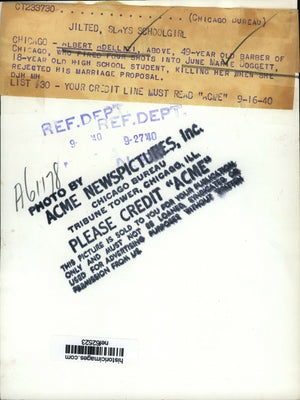 CT233730
(CHICAGO BUREAU)
JILTED, SLAYS SCHOOLGIRL
CHICAGO - ALBERT ABOVE, 49-YEAR OLD BARBER OF
CHICAGO, WHO FIRED FOUR SHOTS INTO JUNE MARIE DOGGETT,
18-YEAR OLD HIGH SCHOOL STUDENT, KILLING HER WHEN SHE
REJECTED HIS MARRIAGE PROPOSAL.
DJH MH
LIST #30 - YOUR CREDIT LINE MUST READ "ACME" 9-16-40
REF.DEPT
REF.DEPT.
9- 40
9-27 40
A61178
PHOTO BY
ACME NEWSPICTURES, Inc.
CHICAGO BUREAU
TRIBUNE TOWER, CHICAGO, ILL
PLEASE CREDIT "ACME"
THIS PICTURE IS SOLD TO YOU FOR YOUR PUBLICATION
ONLY AND MUST NOT BE LOANED, SYNDICATED OR
USED FOR ADVERTISING PURPOSES WITHOUT WRITTEN
PERMISSION FROM US.
historicimages.com
nef62523